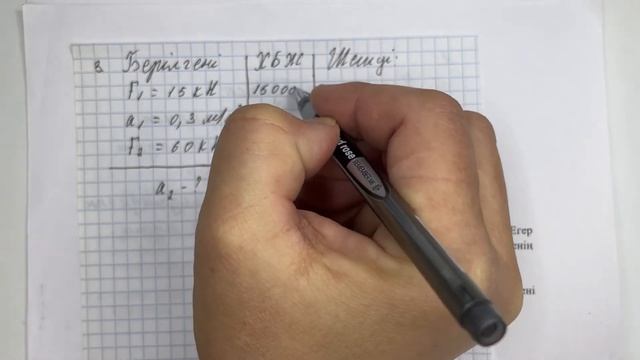 3. Берілгені ХБЖ Шешуі:
F₁ = 15 кН 15000
a₁ = 0,3 м/
F₂ = 60 к
a₂ - ?
Егер
ені